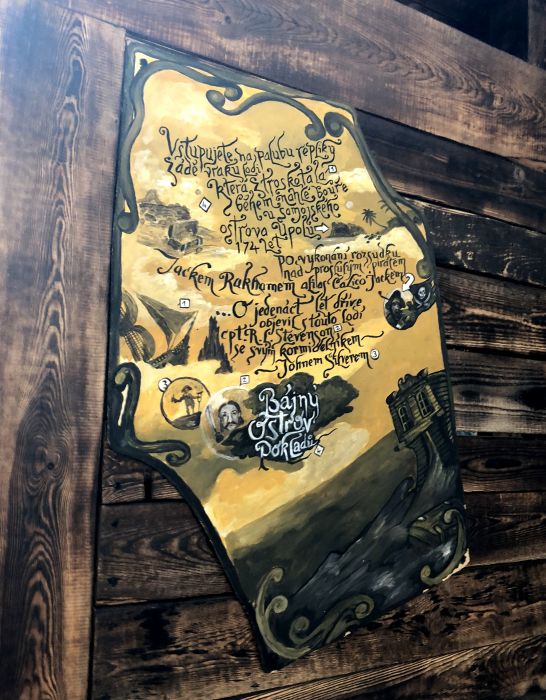 Vstupujete na palubu repliky
zádě vraku lodi 5
která ztroskotala
během náhlé bouře
u Samojského
ostrova Upolu
1742 let
po vykonání rozsudku
nad proslulým pirátem
Jackem Rakhamem alias Calico Jackem
...O jedenáct let dříve
objevil s touto lodí
cpt. R. L. Stevenson 2
se svým kormidelníkem
Johnem Silverem 3
1
4
3
2
Bájný
Ostrov
Pokladů